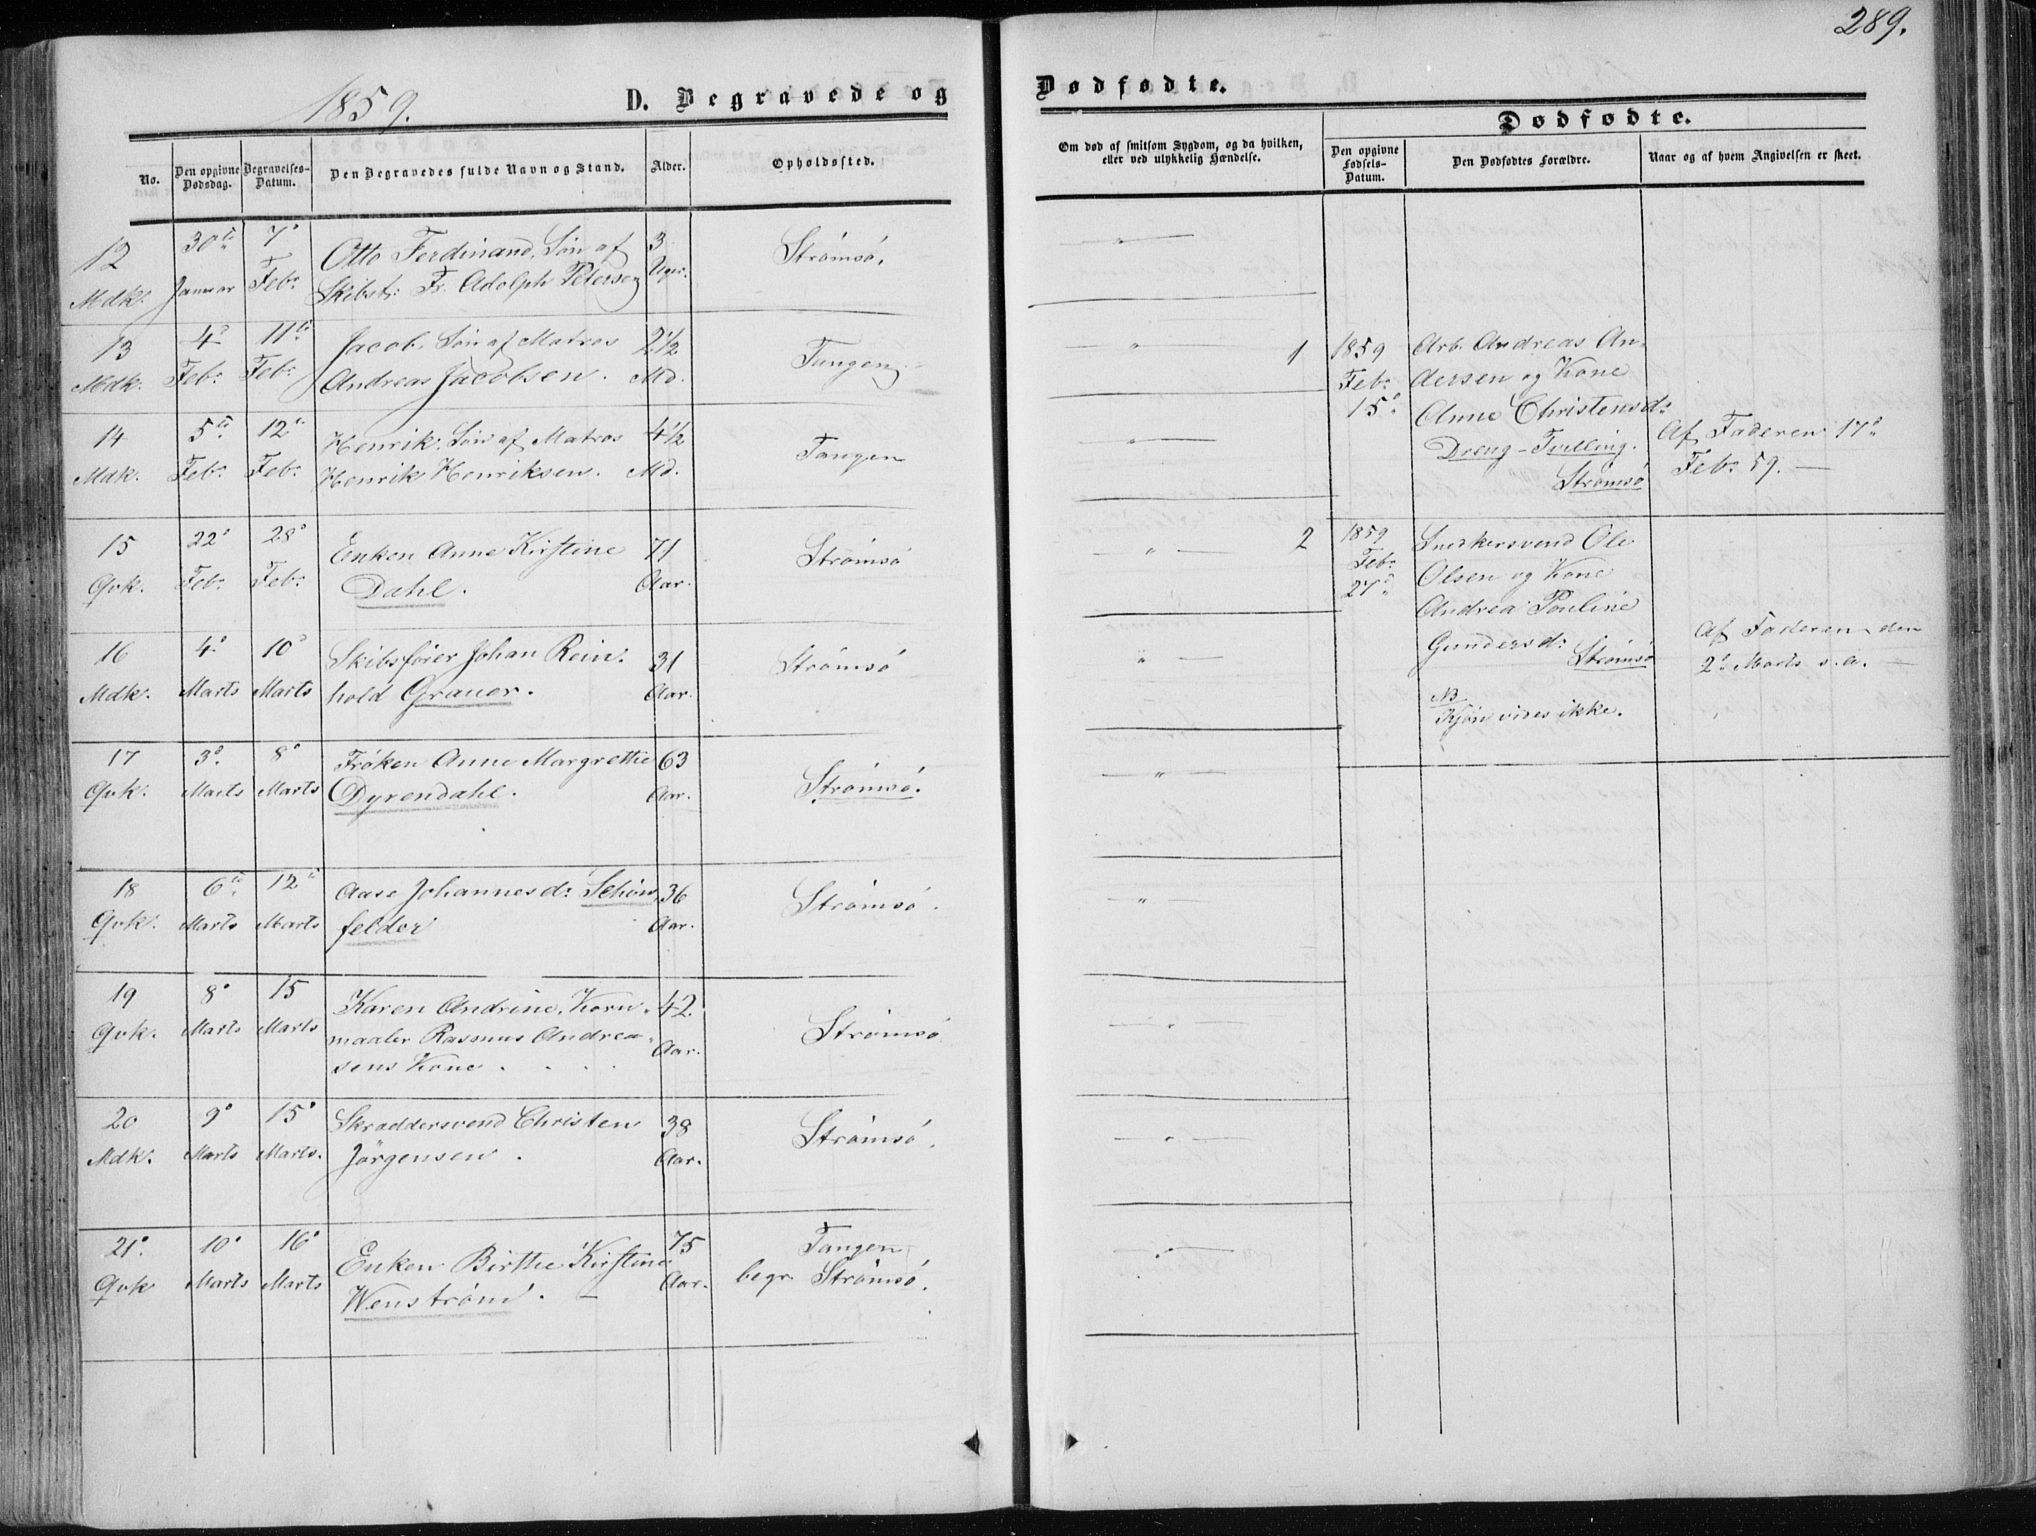 289.
1859.
D. Begravede og
Dødfødte.
No.
Den opgivne Dødsdag.
Begravelses-Datum.
Den Begravedes fulde Navn og Stand.
Alder.
Opholdssted.
Om død af smitsom Sygdom, og da hvilken,
eller ved ulykkelig Hændelse.
Dødfødte.
Den opgivne Fødsels-Datum.
Den Dødfødtes Forældre.
Naar og af hvem Angivelsen er skeet.
12 30te 7de Otto Ferdinand, Søn af 3 Strømsø.
Mdk. Januar Feb. Skibst: Fr. Adolph Petersen Uger.
13 4de 11te Jacob, Søn af Matros 2½ Tangen
Mdk. Feb: Feb: Andreas Jacobsen. Md.
14 5te 12te Henrik, Søn af Matros 4½ Tangen
Mdk. Feb: Feb: Henrik Henriksen. Md.
15 22de 28de Enken Anne Kirstine 71 Strømsø
Qvk. Feb: Feb: Dahl. Aar.
16 4de 10de Skibsfører Johan Rein- 31 Strømsø
Mdk. Marts Marts hold Grauer. Aar.
17 3de 8de Frøken Anne Margrethe 63 Strømsø.
Qvk. Marts Marts Dyrendahl. Aar.
18 6te 12te Aase Johannesd: Schøn- 36 Strømsø.
Qvk. Marts Marts felder Aar.
19 8de 15 Karen Andrine, Korn- 42 Strømsø
Qvk. Marts Marts maaler Rasmus Andrea-
sens Kone. Aar.
20 9de 15de Skraddersvend Christen 38 Strømsø.
Mdk. Marts Marts. Jörgensen. Aar.
21de 10de 16de Enken Birthe Kirstine 75 Tangen
Qvk Marts Marts Wenstrøm. Aar. begr. Strømsø.
1 1859 Arb. Andreas An-
Feb: dersen og Kone
15de Anne Christensd:
Dreng-Tvilling.
Strømsø
Af Faderen 17de
Feb: 59.
2 1859 Snedkersvend Ole
Feb: Olsen og Kone
27de Andrea Pouline
Gundersd: Strømsø
NB
Kjøn vides ikke.
Af Faderen den
2de Marts s.a.